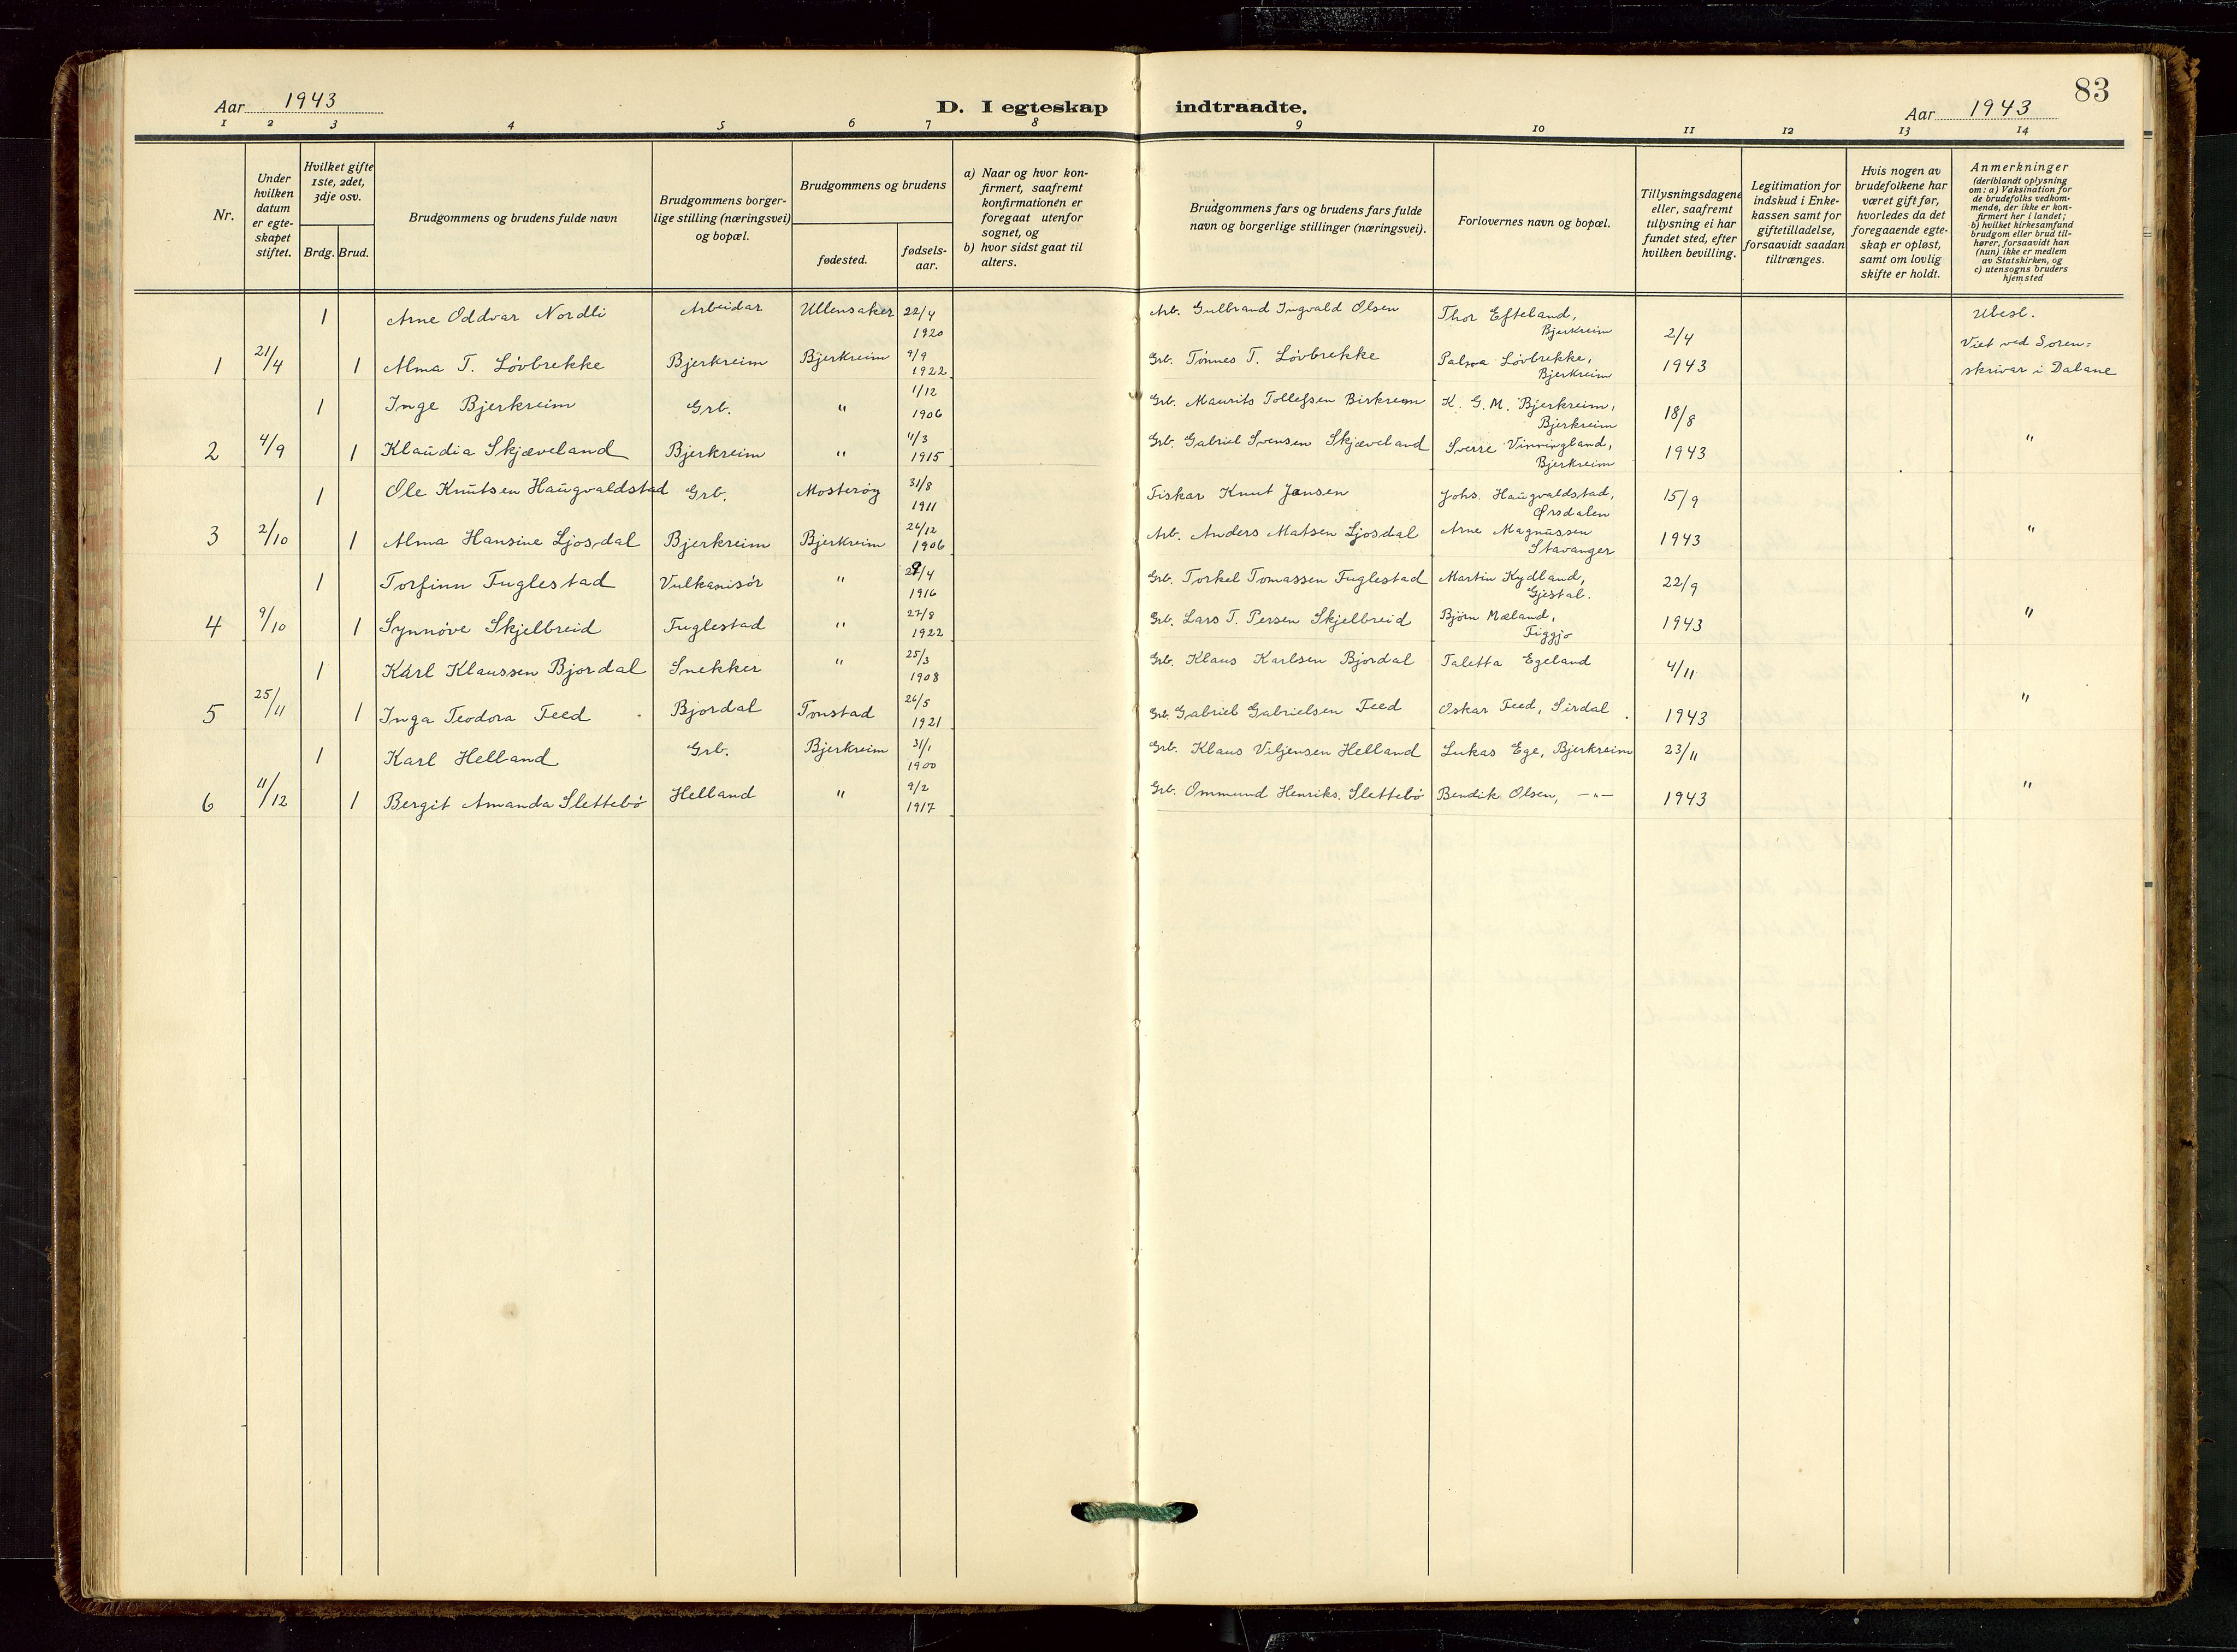 83
Aar 1943
D. I egteskap indtraadte.
Aar 1943
1 2 3 4 5 6 7 8 9 10 11 12 13 14
Nr.
Under
hvilken
datum
er egte-
skapet
stiftet.
Hvilket gifte
1ste, 2det,
3dje osv.
Brdg. Brud.
Brudgommens og brudens fulde navn
Brudgommens borger-
lige stilling (næringsvei)
og bopæl.
Brudgommens og brudens
fødested.
fødsels-
aar.
a) Naar og hvor kon-
firmert, saafremt
konfirmationen er
foregaat utenfor
sognet, og
b) hvor sidst gaat til
alters.
Brudgommens fars og brudens fars fulde
navn og borgerlige stillinger (næringsvei).
Forlovernes navn og bopæl.
Tillysningsdagene
eller, saafremt
tillysning ei har
fundet sted, efter
hvilken bevilling.
Legitimation for
indskud i Enke-
kassen samt for
giftetilladelse,
forsaavidt saadan
tiltrænges.
Hvis nogen av
brudefolkene har
været gift før,
hvorledes da det
foregaaende egte-
skap er opløst,
samt om lovlig
skifte er holdt.
Anmerkninger
(deriblandt oplysning
om: a) Vaksination for
de brudefolks vedkom-
mende, der ikke er kon-
firmert her i landet;
b) hvilket kirkesamfund
brudgom eller brud til-
hører, forsaavidt han
(hun) ikke er medlem
av Statskirken, og
c) utensogns bruders
hjemsted
1 Arne Oddvar Nordli Arbeidar Ullensaker 22/4 1920 Arb. Gulbrand Ingvald Olsen Thor Efteland, Bjerkreim 2/4 Ubesl.
1 21/4 1 Alma T. Løvbrekke Bjerkreim Bjerkreim 9/9 1922 Grb. Tønnes T. Løvbrekke Palma Løvbrekke, Bjerkreim 1943 Viet ved Soren=
skrivar i Dalane
1 Inge Bjerkreim Grb. " 1/12 1906 Grb. Maurits Tollefsen Birkrem K. G. M. Bjerkreim, Bjerkreim 18/8
2 4/9 1 Klaudia Skjæveland Bjerkreim " 11/3 1915 Grb. Gabriel Svensen Skjæveland Sverre Vinningland, Bjerkreim 1943 "
1 Ole Knutsen Haugvaldstad Grb. Mosterøy 31/8 1911 Fiskar Knut Jansen Johs. Haugvaldstad, Ørsdalen 15/9
3 2/10 1 Alma Hansine Ljosdal Bjerkreim Bjerkreim 26/12 1906 Arb. Anders Matsen Ljosdal Arne Magnussen Stavanger 1943 "
1 Torfinn Fuglestad Vulkanisør " /4 1916 Grb. Torkel Tomassen Fuglestad Martin Kydland, Gjestal. 22/9
4 9/10 1 Synnøve Skjelbreid Fuglestad " 27/8 1922 Grb. Lars T. Persen Skjelbreid Bjørn Mæland, Figgjo 1943 "
1 Karl Klaussen Bjordal Snekker " 25/3 1908 Grb. Klaus Karlsen Bjordal Taletta Egeland 4/11
5 25/11 1 Inga Teodora Feed Bjordal Tonstad 26/5 1921 Grb. Gabriel Gabrielsen Feed Oskar Feed, Sirdal. 1943 "
1 Karl Helland Grb. Bjerkreim 31/1 1900 Grb. Klaus Viljensen Helland Lukas Ege, Bjerkreim 23/11
6 11/12 1 Bergit Amanda Slettebø Helland " 9/2 1917 Grb. Ommund Henriks. Slettebø Bendik Olsen, —"— 1943 "